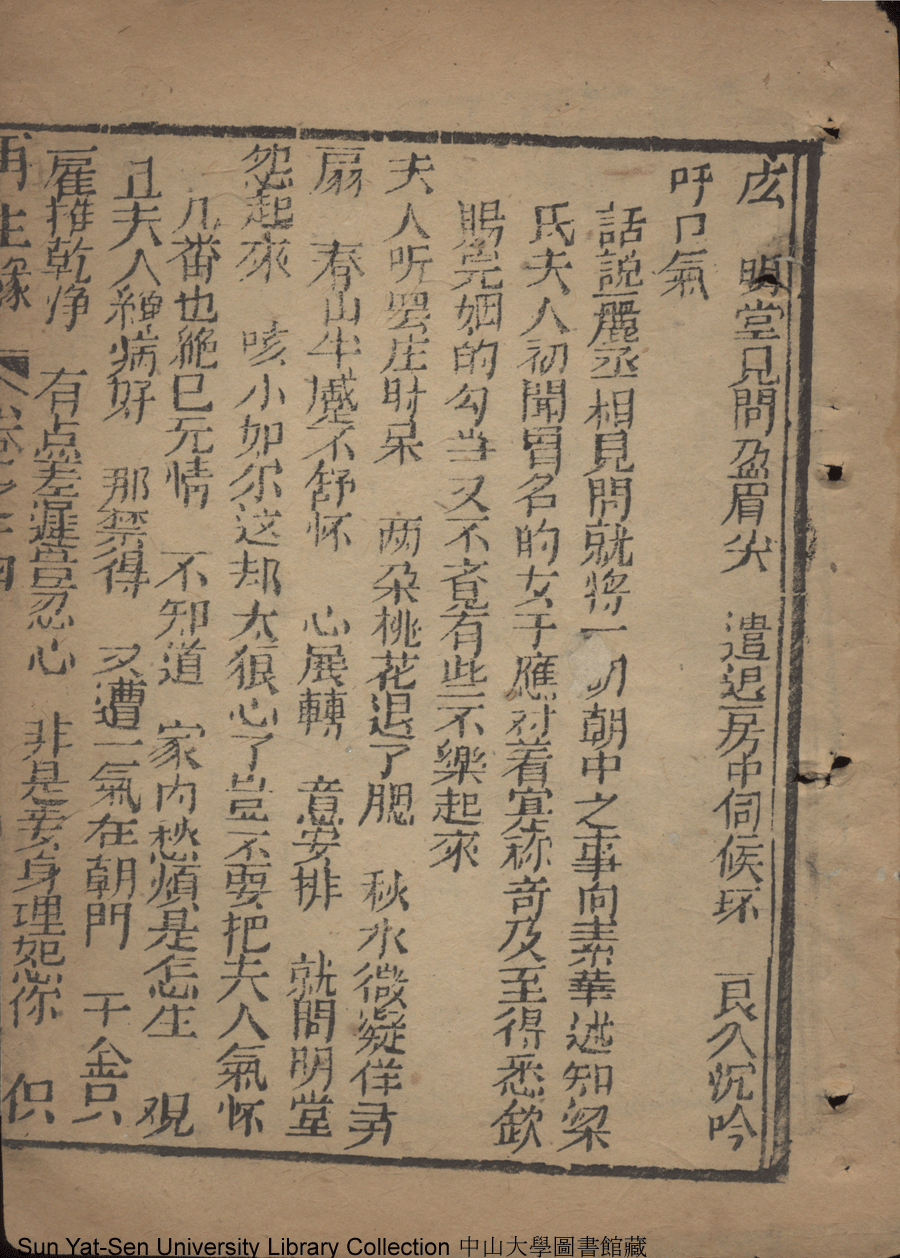 庅　明堂見問盈眉尖　遣退房中伺候环　良久沉吟
呼口氣
話說麗丞相見問就將一切朝中之事向素華述知梁
氏夫人初聞冒名的女子應对着寔称奇及至得悉欽
賜完姻的勾当又不覺有些不樂起來
夫人听罢庒时呆　两朵桃花退了腮　秋水微凝佯弄
扇　春山半蹙不舒怀　心展轉　意安排　就問明堂
怨起來　咳小如尔这却太狠心了豈不要把夫人氣怀
几番也絶巳无情　不知道　家内愁煩是怎生　观
丑夫人纔病好　那禁得　又遭一氣在朝門　千金只
雇推乾净　有点差遲豈忍心　非是妾身理恕你　但
再生緣　卷之十四
Sun Yat-Sen University Library Collection 中山大學圖書館藏